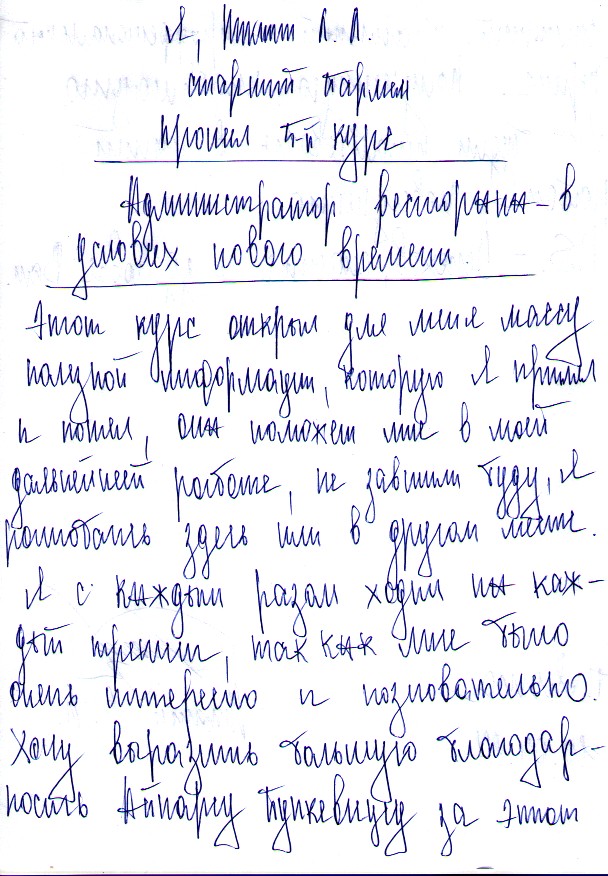 Я, Никит А. А.
старший бармен
прошел 5-й курс
Администратор ресторана - в
условиях нового времени.
Этот курс открыл для меня массу
полезной информации, которую я принял
и понял, она поможет мне в моей
дальнейшей работе, не завишили буду, я
работать здесь или в другом месте.
Я с каждым разом ходил на каж-
дый тренинг, так как мне было
очень интересно и познавательно.
Хочу выразить большую благодар-
ность за этот